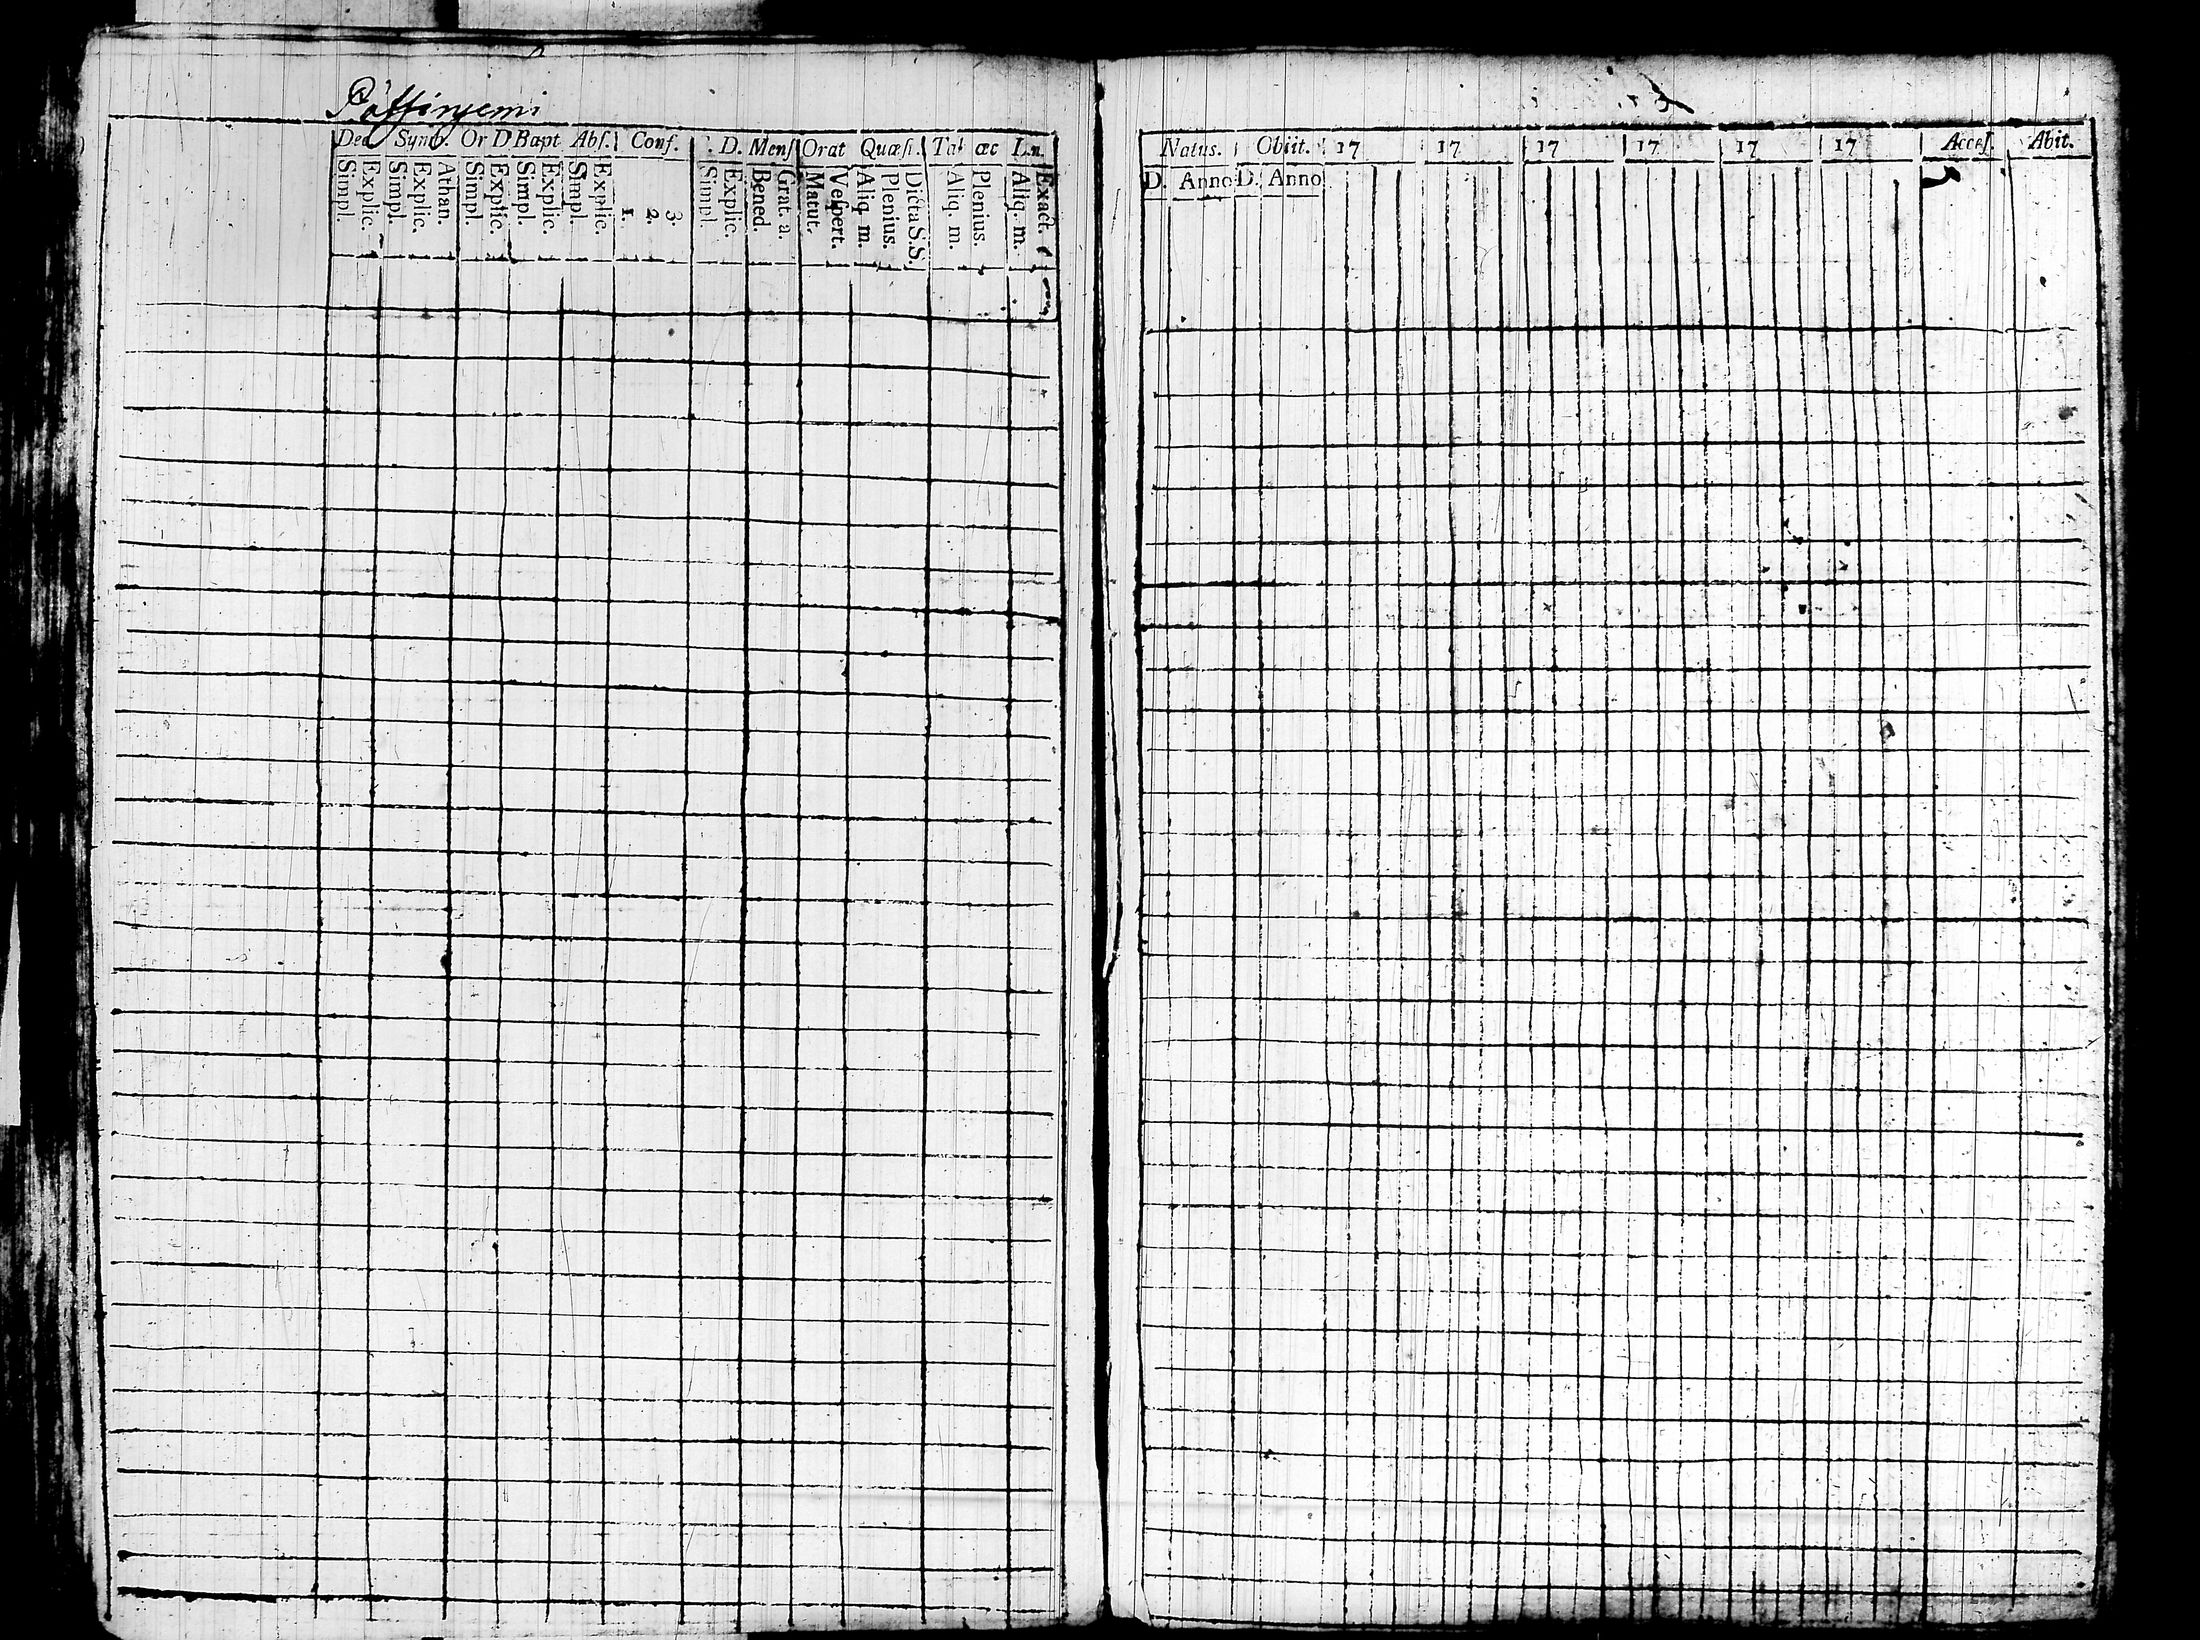 Pöllinjemi
Dec. Symb. Or D Bapt Abſ. Conf. D. Menſ Orat Quæſi. Tab œc Ln.
Simpl. Explic. Simpl. Explic. Athan. Simpl. Explic. Simpl. Explic. Simpl. Explic. 1. 2. 3. Simpl. Explic. Bened. Grat. a. Matut. Veſpert. Aliq. m. Plenius. Dicta S.S. Aliq. m. Plenius. Aliq. m. Exact.
Natus. Obiit. 17 17 17 17 17 17 Acceſ. Abit.
D. Anno D. Anno